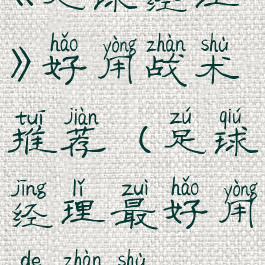 hǎo yòng zhàn shù
》好用战术
tuī jiàn zú qiú
推荐（足球
jīng lǐ zuì hǎo yòng
经理最好用
de zhàn shù